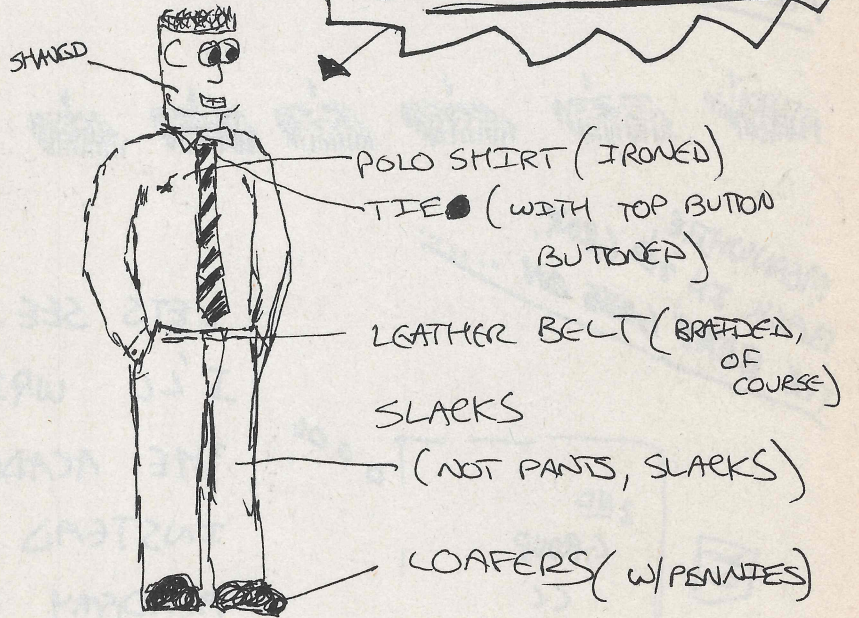 SHAVED
POLO SHIRT (IRONED)
TIE (WITH TOP BUTTON
BUTTONED)
LEATHER BELT (BRAIDED,
OF
COURSE)
SLACKS
(NOT PANTS, SLACKS)
LOAFERS (W/PENNIES)